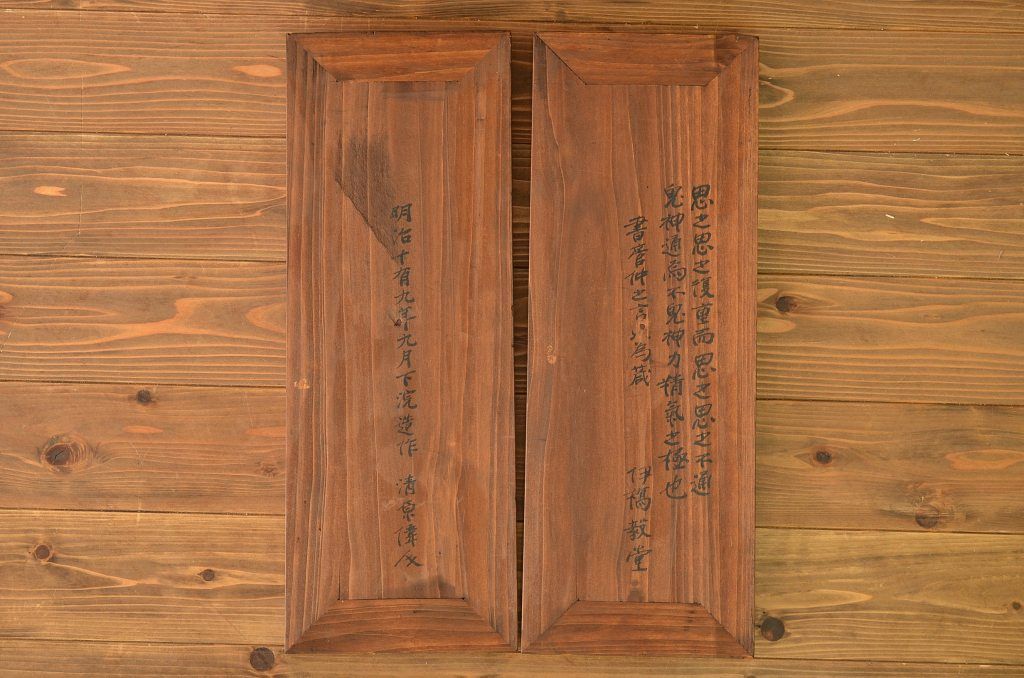 思之思之復重而思之思之不通
鬼神通焉不鬼神力精氣之極也
書管仲之言以為箴 伊橋教堂
明治十有九年九月下浣造作 清原